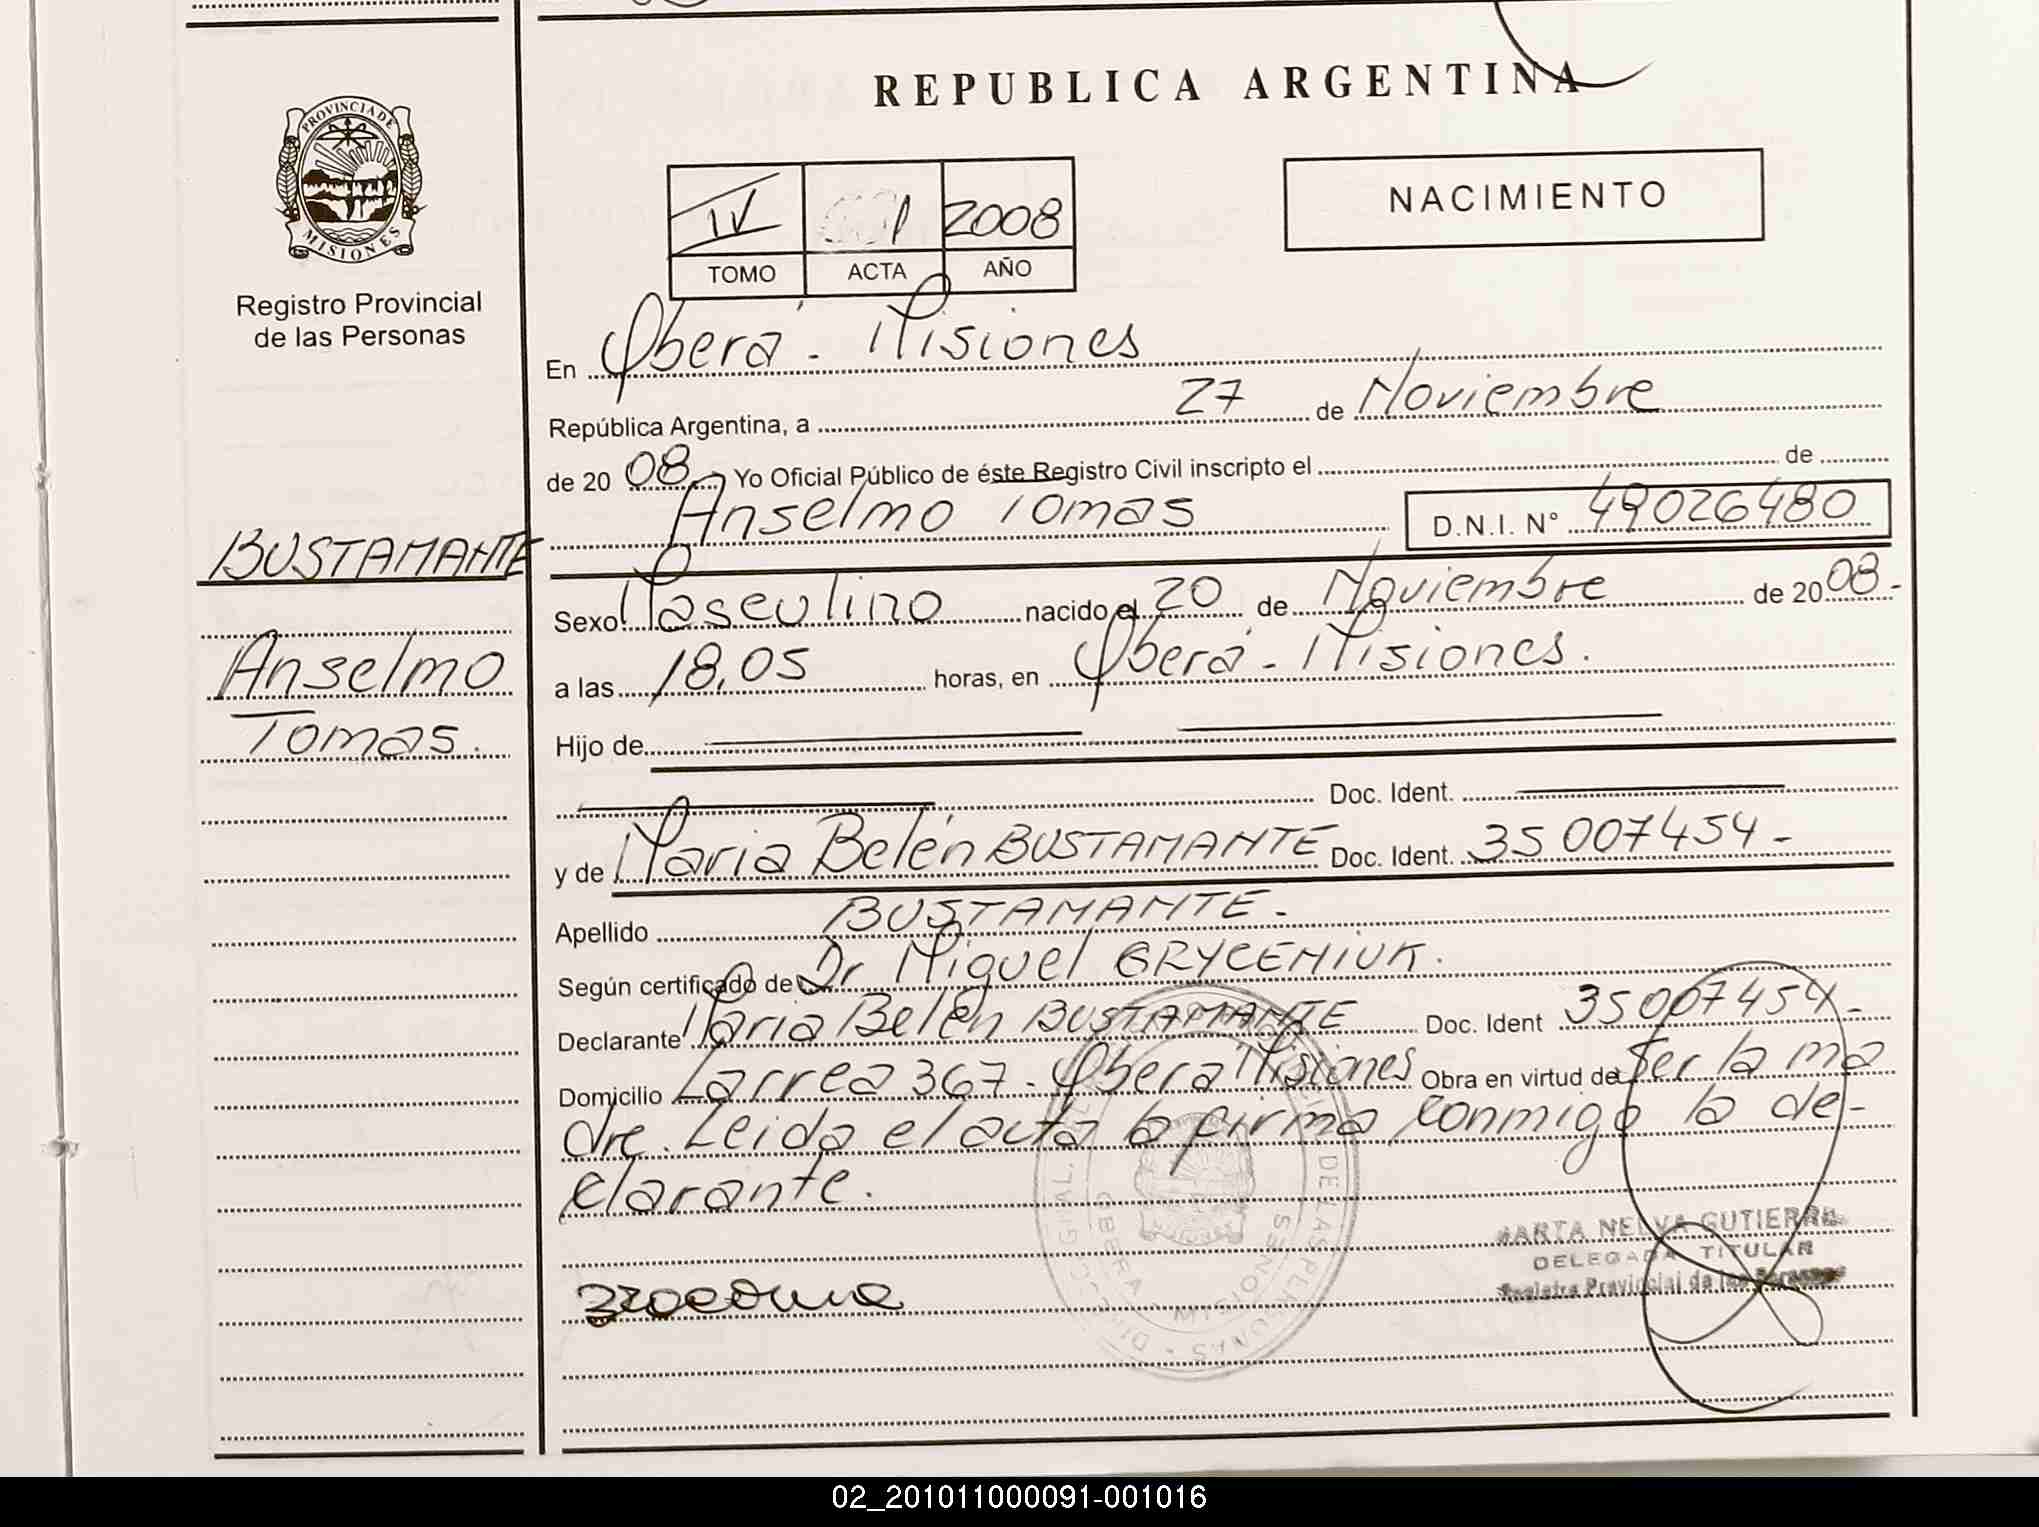 REPUBLICA ARGENTINA
PROVINCIA DE
MISIONES
Registro Provincial
de las Personas
NACIMIENTO
IV 2008
TOMO ACTA AÑO
En Oberá - Misiones
República Argentina, a 27 de Noviembre
de 20 08 Yo Oficial Público de éste Registro Civil inscripto el de
Anselmo Tomas D.N.I. N° 49026480
BUSTAMANTE
Anselmo
Tomas.
Sexo Masculino nacido el 20 de Noviembre de 2008.-
a las 18,05 horas, en Oberá - Misiones.
Hijo de
Doc. Ident.
y de Maria Belén BUSTAMANTE Doc. Ident. 35 007454-
Apellido BUSTAMANTE-
Según certificado de Dr Miguel GRYCENIUK.
Declarante Maria Belén BUSTAMANTE Doc. Ident 35007454-
Domicilio Larrea 367- Oberá Misiones Obra en virtud de Ser la ma
dre. Leida el acta la firma conmigo la de-
clarante.
MARTA NELVA GUTIERREZ
DELEGADA TITULAR
Registro Provincial de las Personas
OBERA - MISIONES
02_201011000091-001016